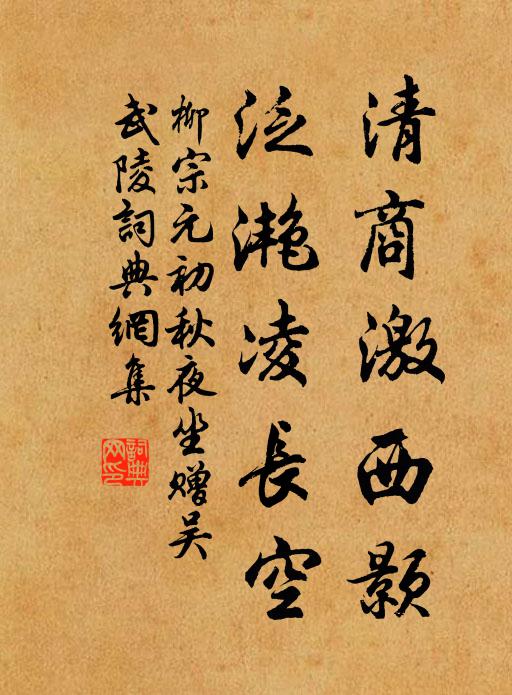 清商激西顥
泛灔凌長空
柳宗元初秋夜坐赠吴
武陵詞典網集
詞典网印